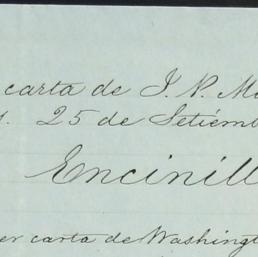 carta de J. P. M
s. 25 de Setiemb
Encinill
er carta de Washingt